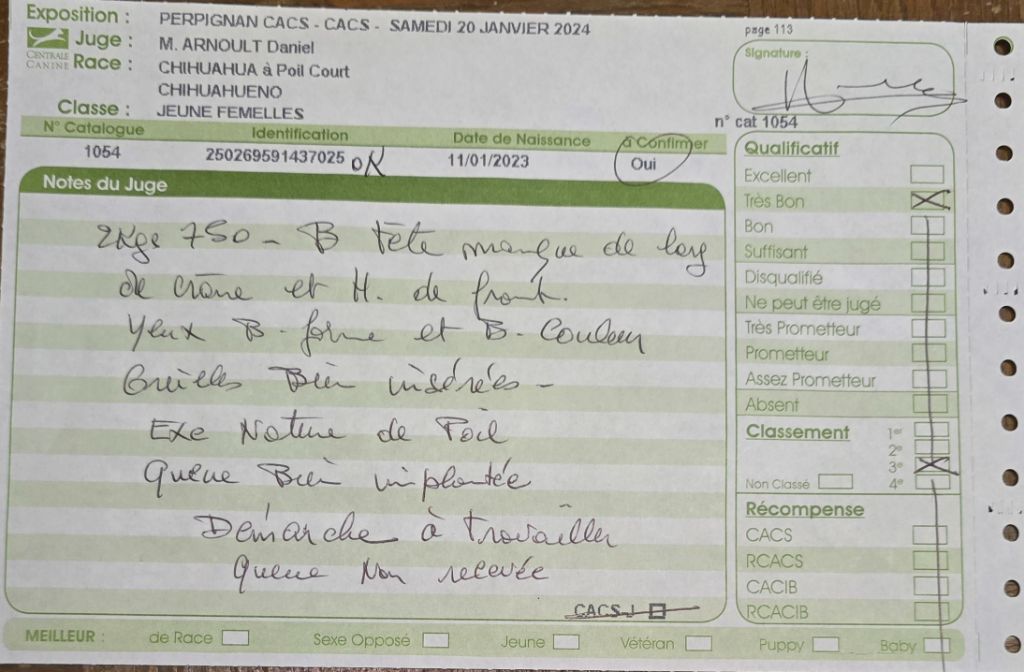 Exposition : PERPIGNAN CACS - CACS - SAMEDI 20 JANVIER 2024
page 113
CENTRALE CANINE
Juge : M. ARNOULT Daniel
Race : CHIHUAHUA à Poil Court
CHIHUAHUENO
Classe : JEUNE FEMELLES
Signature :
n° cat 1054
N° Catalogue Identification Date de Naissance à Confirmer
1054 250269591437025 OK 11/01/2023 Oui
Notes du Juge
2Kgs 750 - B tête manque de larg
de crâne et H. de front.
Yeux B. forme et B. Couleur
Oreilles Bien insérées -
Exe Nature de Poil
Queue Bien implantée
Démarche à travailler
Queue Non relevée
CACS J
Qualificatif
Excellent
Très Bon
Bon
Suffisant
Disqualifié
Ne peut être jugé
Très Prometteur
Prometteur
Assez Prometteur
Absent
Classement 1er
2e
3e
Non Classé 4e
Récompense
CACS
RCACS
CACIB
RCACIB
MEILLEUR : de Race Sexe Opposé Jeune Vétéran Puppy Baby